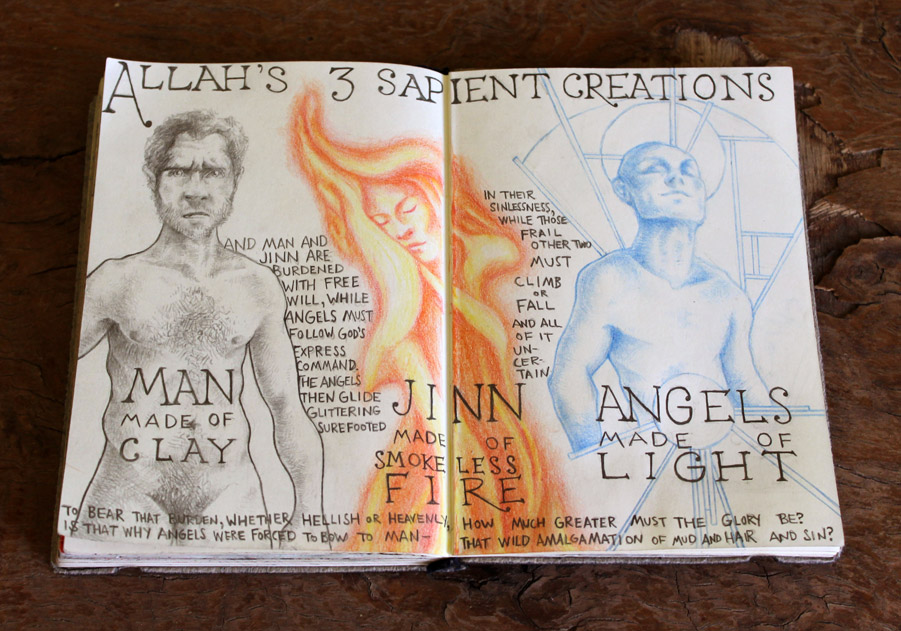 ALLAH'S 3 SAPIENT CREATIONS
AND MAN AND
JINN ARE
BURDENED
WITH FREE
WILL, WHILE
ANGELS MUST
FOLLOW GOD'S
EXPRESS
COMMAND.
THE ANGELS
THEN GLIDE
GLITTERING
SUREFOOTED
IN THEIR
SINLESSNESS,
WHILE THOSE
FRAIL
OTHER TWO
MUST
CLIMB
OR
FALL
AND ALL
OF IT
UN-
CER-
TAIN
MAN
MADE OF
CLAY
JINN
MADE OF
SMOKELESS
FIRE
ANGELS
MADE OF
LIGHT
TO BEAR THAT BURDEN, WHETHER HELLISH OR HEAVENLY, HOW MUCH GREATER MUST THE GLORY BE?
IS THAT WHY ANGELS WERE FORCED TO BOW TO MAN- THAT WILD AMALGAMATION OF MUD AND HAIR AND SIN?